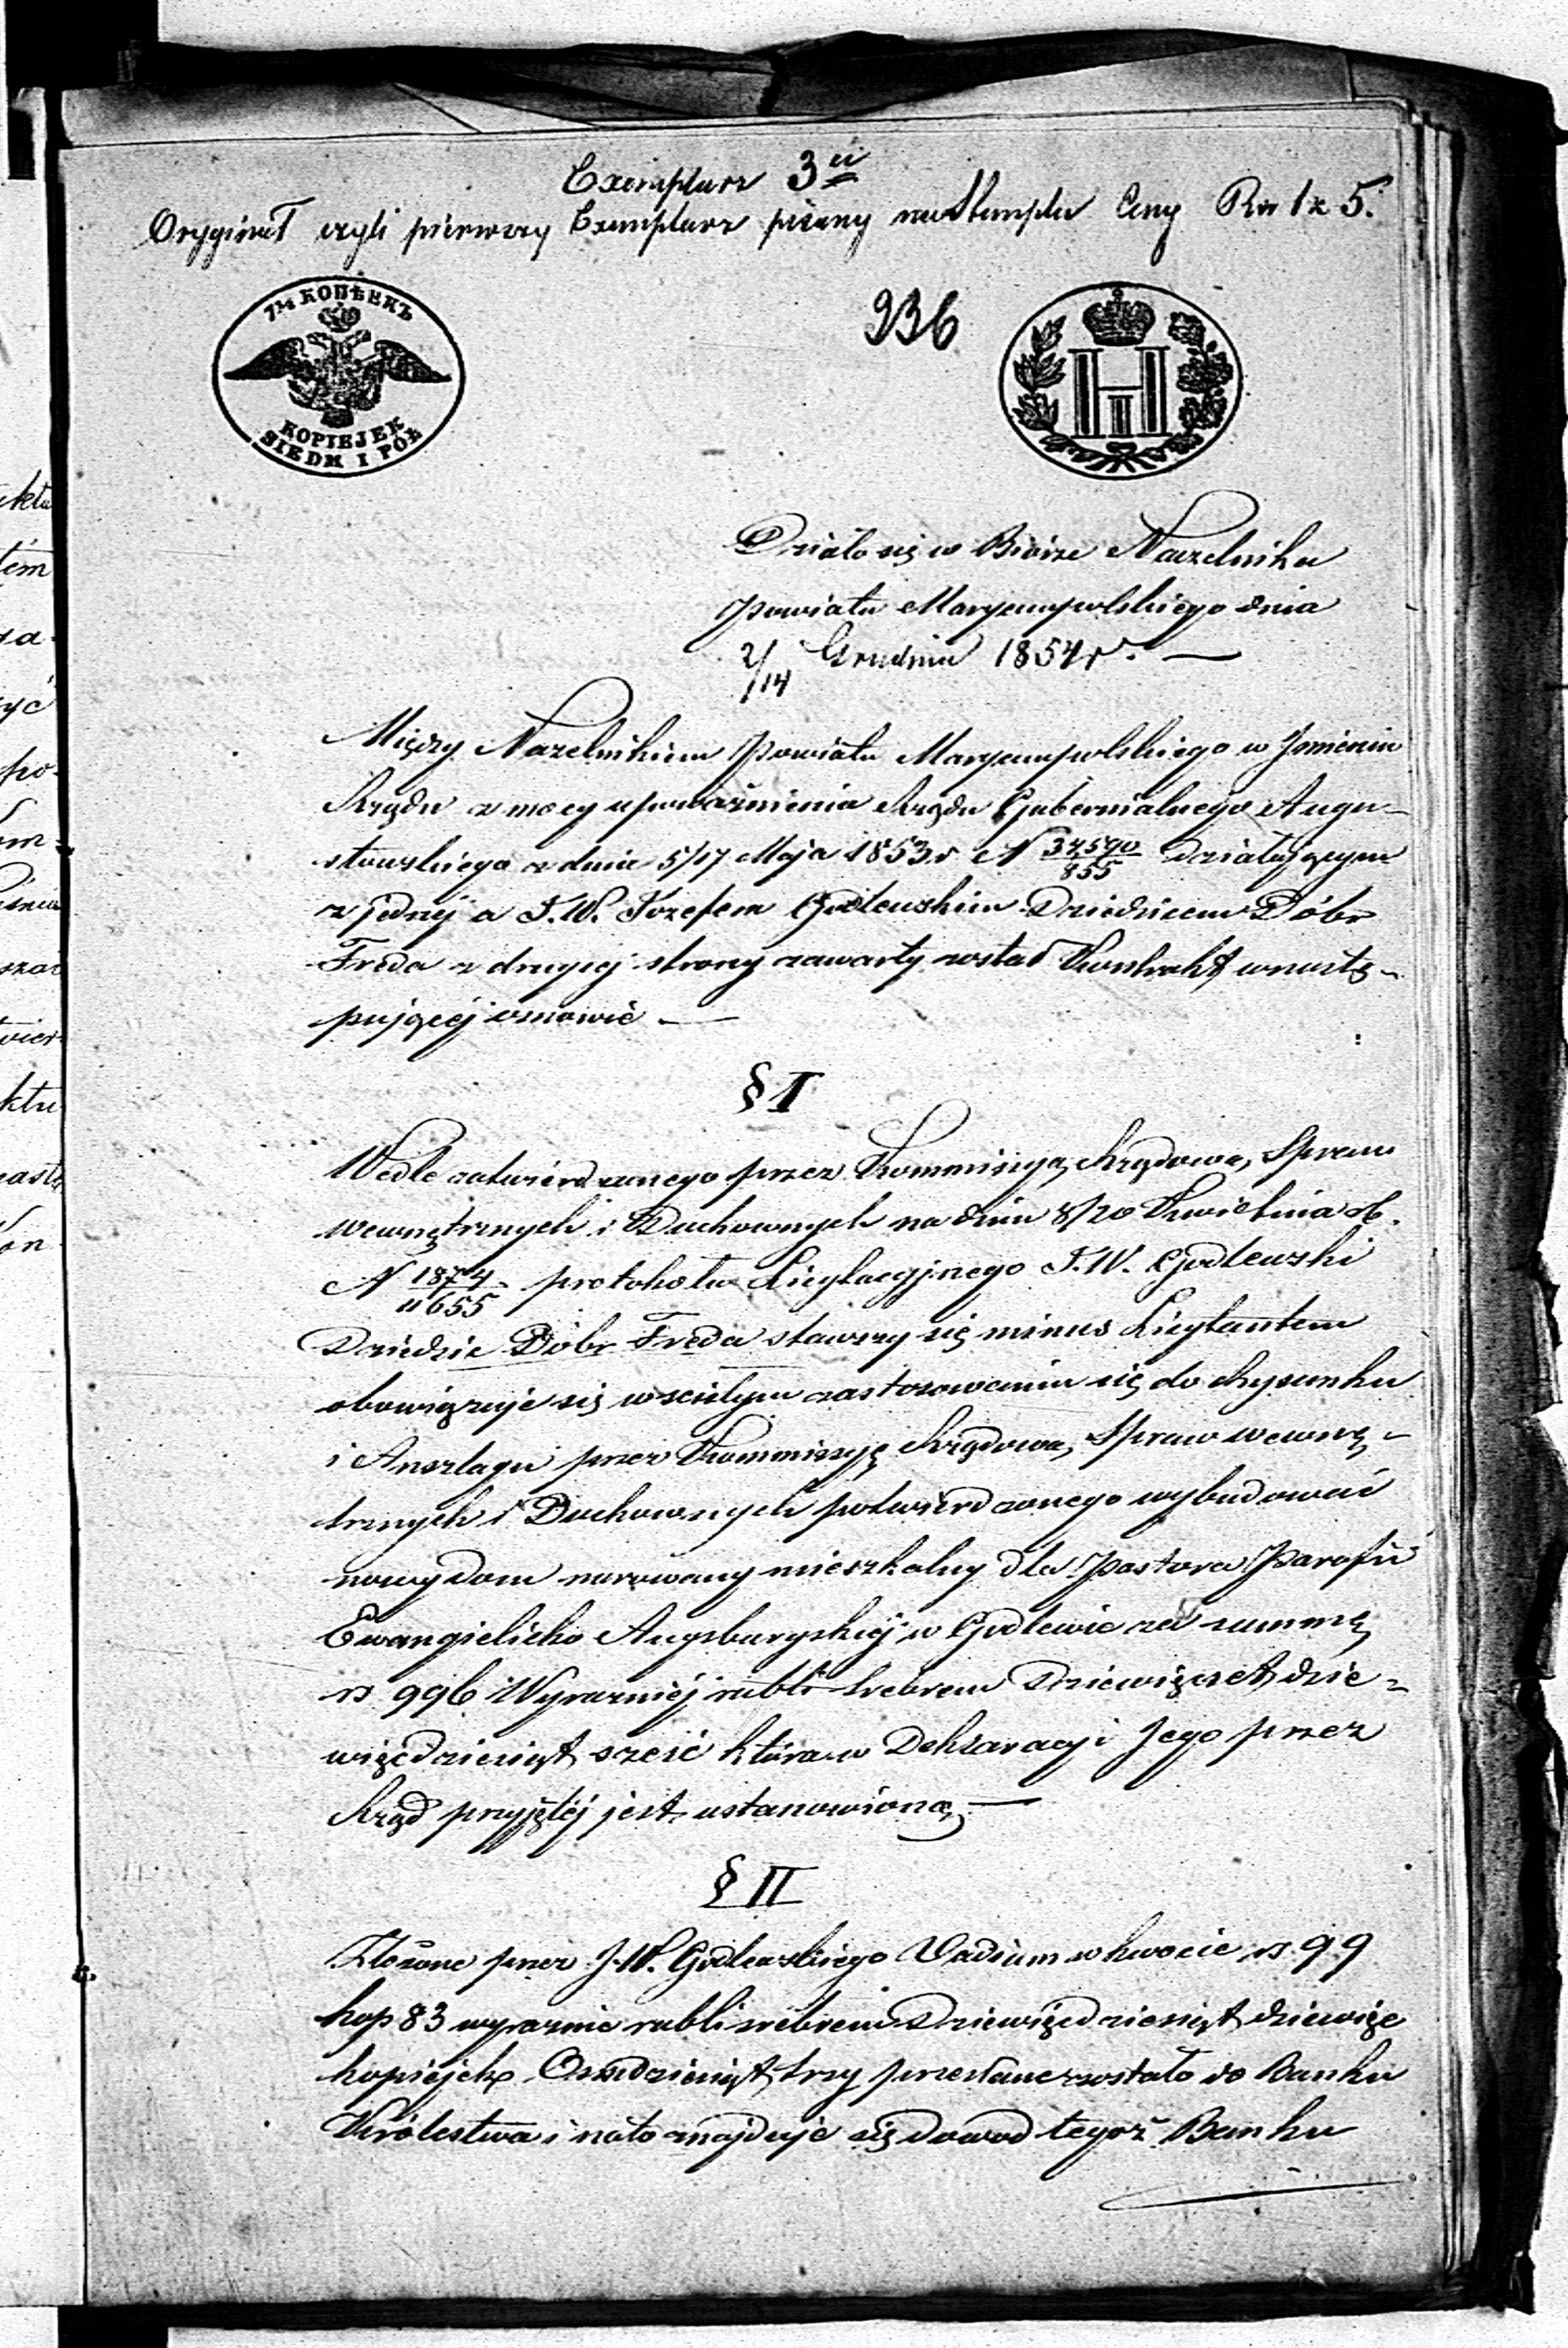 Exemplarz 3ci
Oryginał czyli pierwszy Exemplarz pisany na Stemplu Ceny Rs 1 k 5.
7½ КОПѢЕКЪ
KOPIEJEK
SIEDM I PÓŁ
936
Działo się w Biórze Naczelnika
Powiatu Maryampolskiego dnia
2/14 Grudnia 1854 r. —
Między Naczelnikiem Powiatu Maryampolskiego w Imieniu
Rządu z mocy upoważnienia Rządu Gubernialnego Augu-
stowskiego z dnia 5/17 Maja 1853 r N 37590/855 działającym
z jednej a J.W. Józefem Godlewskim Dziedzicem Dóbr
Freda z drugiej strony zawarty został Kontrakt w nastę-
pującej osnowie —
§ I
Wedle zatwierdzonego przez Kommissyą Rządową Spraw
Wewnętrznych i Duchownych na dniu 8/20 Kwietnia rb.
N 1874/11655 protokołu Licytacyjnego J.W. Godlewski
Dziedzic Dóbr Freda stawszy się minus Licytantem
obowiązuje się w scisłym zastosowaniu się do Rysunku
i Anszlagu przez Kommissyę Rządową Spraw wewnę-
trznych i Duchownych potwierdzonego wybudować
nowy dom murowany mieszkalny dla Pastora Parafii
Ewangielicko Augsburgskiej w Godlewie za summę
rs 996 Wyrazniej rubli srebrem Dziewięcset dzie-
więcdziesiąt sześć która w Deklaracyi Jego przez
Rząd przyjętej jest ustanowioną —
§ II
Złożone przez J.W. Godlewskiego Vadium w kwocie rs 99
kop 83 wyraznie rubli srebrem Dziewięcdziesiąt dziewięc
kopiejek Osmdziesiąt trzy przesłane zostało do Banku
Królestwa i na to znajduje się dowod tegoż Banku